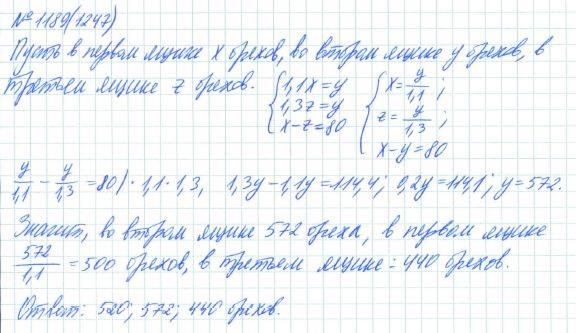 № 1189(1247)
Пусть в первом ящике x орехов, во втором ящике y орехов, в
третьем ящике z орехов. { 1,1x = y; 1,3z = y; x - z = 80 { x = y/1,1; z = y/1,3; x - y = 80
y/1,1 - y/1,3 = 80 | · 1,1 · 1,3, 1,3y - 1,1y = 114,4; 0,2y = 114,1; y = 572.
Значит, во втором ящике 572 ореха, в первом ящике
572/1,1 = 500 орехов, в третьем ящике: 440 орехов.
Ответ: 520; 572; 440 орехов.